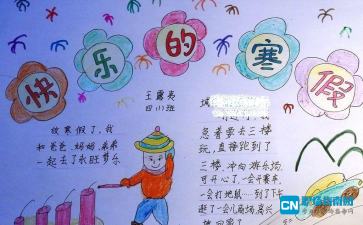 快乐的寒假
王露
四川班
放寒假了，我
和爸爸、妈妈、弟弟
一起去了永旺梦乐
急着要去三楼
玩，直接跑到了
三楼，冲向游乐场，
可开心了，一会开赛车，
一会打地鼠……到了下午
逛了一会儿商场，高兴
CN